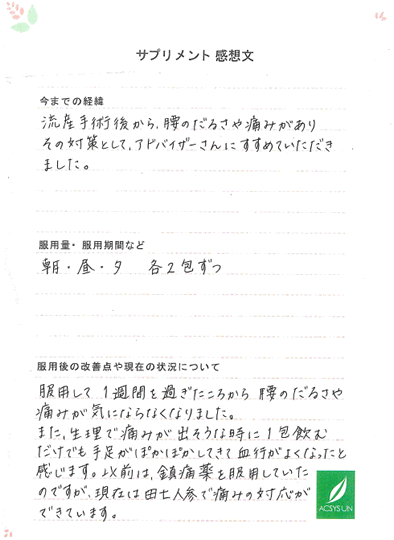 サプリメント 感想文
今までの経緯
流産手術後から、腰のだるさや痛みがあり
その対策として、アドバイザーさんにすすめていただき
ました。
服用量・服用期間など
朝・昼・夕 各2包ずつ
服用後の改善点や現在の状況について
服用して1週間を過ぎたころから 腰のだるさや
痛みが気にならなくなりました。
また、生理で痛みが出そうな時に1包飲む
だけでも手足がぽかぽかしてきて血行がよくなったと
感じます。以前は、鎮痛薬を服用していた
のですが、現在は田七人参で痛みの対応が
できています。
ACSYSUN